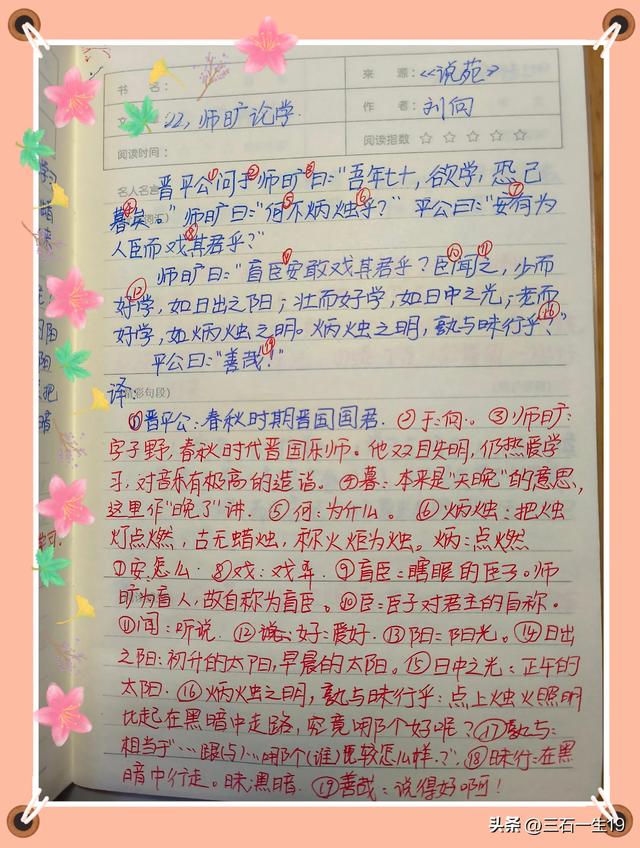 书 名：
22，师旷论学.
来 源：《说苑》
作 者：刘向
阅读时间：
阅读指数 ☆ ☆ ☆ ☆ ☆
名人名言
晋平公①问于②师旷③曰：“吾年七十，欲学，恐已
暮④矣。”师旷曰：“何⑤不炳烛⑥乎？”平公曰：“安⑦有为
人臣而戏⑧其君乎？”
师旷曰：“盲臣⑨安敢戏其君乎？臣⑩闻⑪之，少而
好⑫学，如日出之阳；壮而好学，如日中之光；老而
好学，如炳烛之明。炳烛之明，孰与昧行乎⑯？”
平公曰：“善哉⑲！”
译：
①晋平公：春秋时期晋国国君. ②于：向. ③师旷：
字子野，春秋时代晋国乐师。他双目失明，仍热爱学
习，对音乐有极高的造诣。④暮：本来是“天晚”的意思，
这里作“晚了”讲. ⑤何：为什么。⑥炳烛：把烛
灯点燃，古无蜡烛，称火炬为烛。炳：点燃
⑦安：怎么. ⑧戏：戏弄. ⑨盲臣：瞎眼的臣子。师
旷为盲人，故自称为盲臣。⑩臣：臣子对君主的自称。
⑪闻：听说. ⑫好：爱好. ⑬阳：阳光。⑭日出
之阳：初升的太阳，早晨的太阳。⑮日中之光：正午的
太阳. ⑯炳烛之明，孰与昧行乎：点上烛火照明
比起在黑暗中走路，究竟哪个好呢？⑰孰与：
相当于“…跟(与)…哪个(谁)比较怎么样.？”⑱昧行：在黑
暗中行走。昧：黑暗. ⑲善哉：说得好啊！
头条 @三石一生19